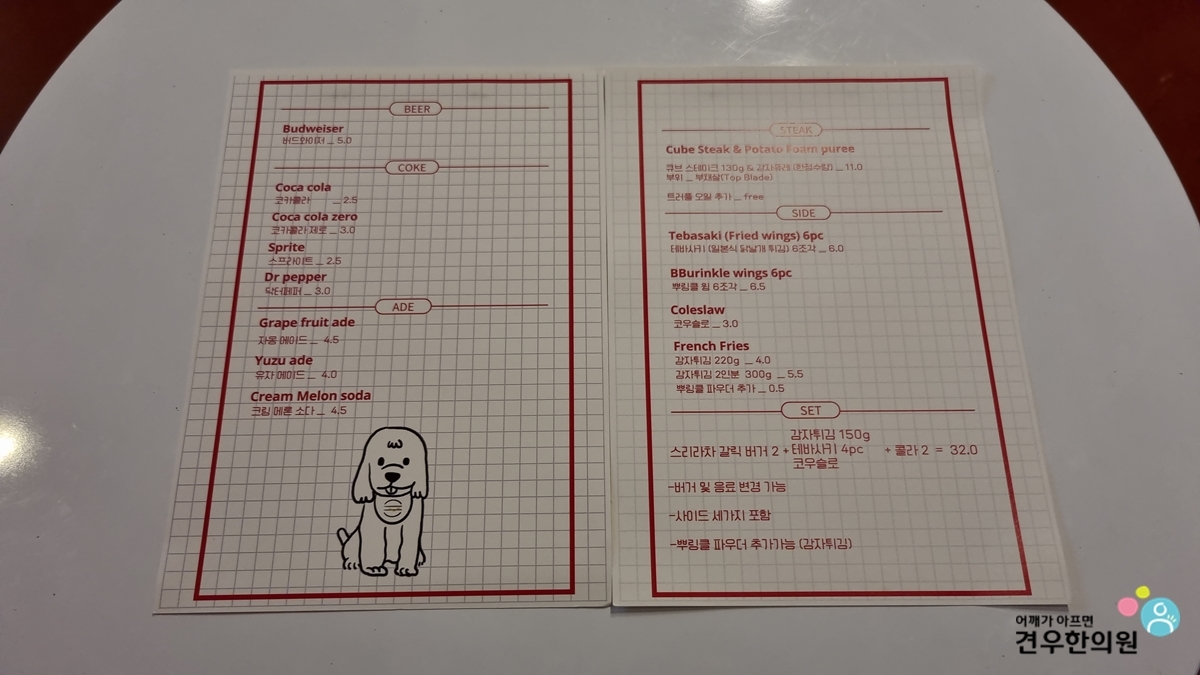 BEER
Budweiser
버드와이저 _ 5.0
COKE
Coca cola
코카콜라 _ 2.5
Coca cola zero
코카콜라 제로 _ 3.0
Sprite
스프라이트 _ 2.5
Dr pepper
닥터페퍼 _ 3.0
ADE
Grape fruit ade
자몽 에이드 _ 4.5
Yuzu ade
유자 에이드 _ 4.0
Cream Melon soda
크림 메론 소다 _ 4.5
STEAK
Cube Steak & Potato Foam puree
큐브 스테이크 130g & 감자퓨레 (한정수량) _ 11.0
부위 _ 부채살(Top Blade)
트러플 오일 추가 _ free
SIDE
Tebasaki (Fried wings) 6pc
테바사키 (일본식 닭날개 튀김) 6조각 _ 6.0
BBurinkle wings 6pc
뿌링클 윙 6조각 _ 6.5
Coleslaw
코우슬로 _ 3.0
French Fries
감자튀김 220g _ 4.0
감자튀김 2인분 300g _ 5.5
뿌링클 파우더 추가 _ 0.5
SET
감자튀김 150g
스리라차 갈릭 버거 2 + 테바사키 4pc + 콜라 2 = 32.0
코우슬로
-버거 및 음료 변경 가능
-사이드 세가지 포함
-뿌링클 파우더 추가가능 (감자튀김)
어깨가 아프면
견우한의원